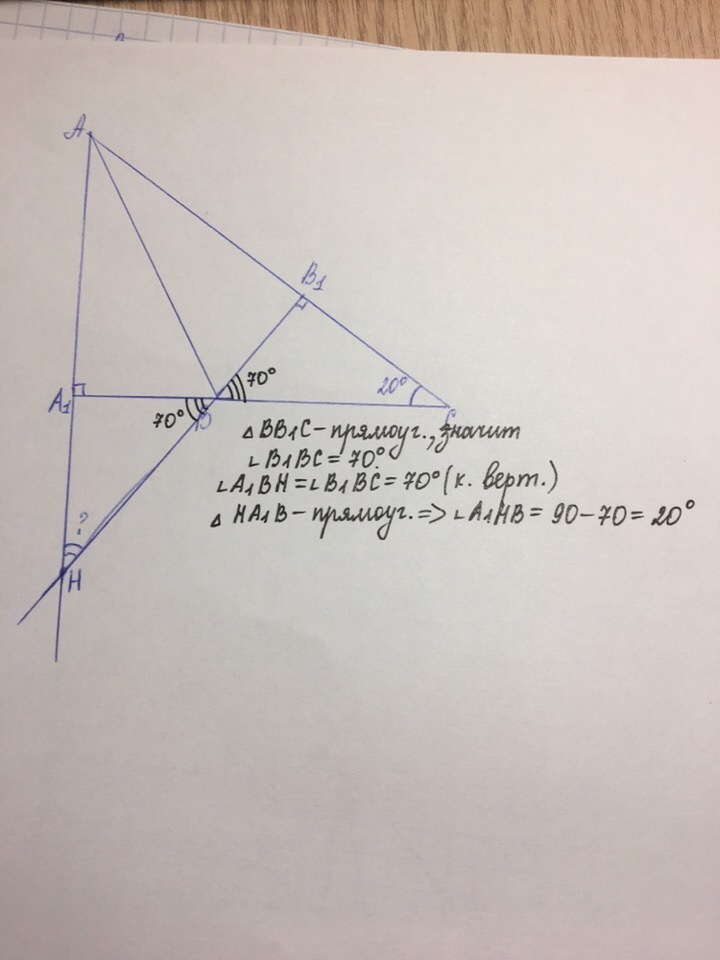 A
B1
70°
20°
A1
C
70°
B
△ BB1C – прямоуг., значит
∠B1BC = 70°.
∠A1BH = ∠B1BC = 70° (к. верт.)
△ HA1B – прямоуг. => ∠A1HB = 90–70 = 20°
?
H